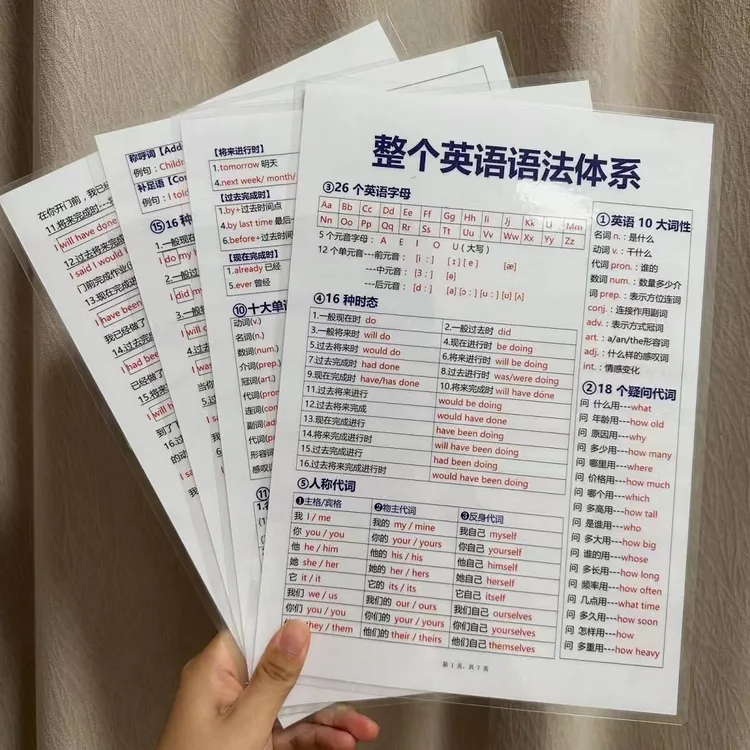 在你开门前，我已经
11.将来完成时
will have done
12.过去将来完成
I said I would
门前完成作业(
13.现在完成时
I have been
我已经做了
14.过去
I had been
我已经做了
15.将来
I will h
到了
16.过
的动
I sa
称呼词【Add
例句：Childr
补足语【Co
例句：I told
⑮16 种
1.一般现在
I do my
2.一般过
I did my
3.一般
【将来进行时】
1.tomorrow 明天
4.next week/ month/
【过去完成时】
1.by+过去时间点
4.by last time 最后一
6.before+过去时间
【现在完成时】
1.already 已经
5.ever 曾经
⑩十大单词
动词(v.)
名词(n.)
数词(num.)
介词(prep.
冠词(art.)
代词(pron
连词(con
副词(ad
代词(p
形容词
感叹词
⑪
整个英语语法体系
③26 个英语字母
Aa Bb Cc Dd Ee Ff Gg Hh Ii Jj Kk Ll Mm
Nn Oo Pp Qq Rr Ss Tt Uu Vv Ww Xx Yy Zz
5 个元音字母： A E I O U (大写)
12 个单元音---前元音： [iː] [ɪ] [e] [æ]
---中元音： [ɜː] [ə]
---后元音：
④16 种时态
1.一般现在时 do 2.一般过去时 did
3.一般将来时 will do 4.现在进行时 be doing
5.过去将来时 would do 6.将来进行时 will be doing
7.过去完成时 had done 8.过去进行时 was/were doing
9.现在完成时 have/has done 10.将来完成时 will have done
11.过去将来进行 would be doing
12.过去将来完成 would have done
13.现在完成进行时 have been doing
14.将来完成进行时 will have been doing
15.过去完成进行 had been doing
16.过去将来完成进行时 would have been doing
⑤人称代词
❶主格/宾格 ❷物主代词 ❸反身代词
我 I / me 我的 my / mine 我自己 myself
你 you / you 你的 your / yours 你自己 yourself
他 he / him 他的 his / his 他自己 himself
她 she / her 她的 her / hers 她自己 herself
它 it / it 它的 its / its 它自己 itself
我们 we / us 我们的 our / ours 我们自己 ourselves
你们 you / you 你们的 your / yours 你们自己 yourselves
they / them 他们的 their / theirs 他们自己 themselves
①英语 10 大词性
名词 n.：是什么
动词 v.：干什么
代词 pron.：谁的
数词 num.：数量多少介
词 prep.：表示方位连词
conj.：连接作用副词
adv.：表示方式冠词
art.：a/an/the形容词
adj.：什么样的感叹词
int.：情感变化
②18 个疑问代词
问 什么用---what
问 年龄用---how old
问 原因用---why
问 多少用---how many
问 哪里用---where
问 价格用---how much
问 哪个用---which
问 多高用---how tall
问 是谁用---who
问 多大用---how big
问 谁的用---whose
问 多长用---how long
问 频率用---how often
问 几点用---what time
问 多久用---how soon
问 怎样用---how
问 多重用---how heavy
第 1 页，共 7 页